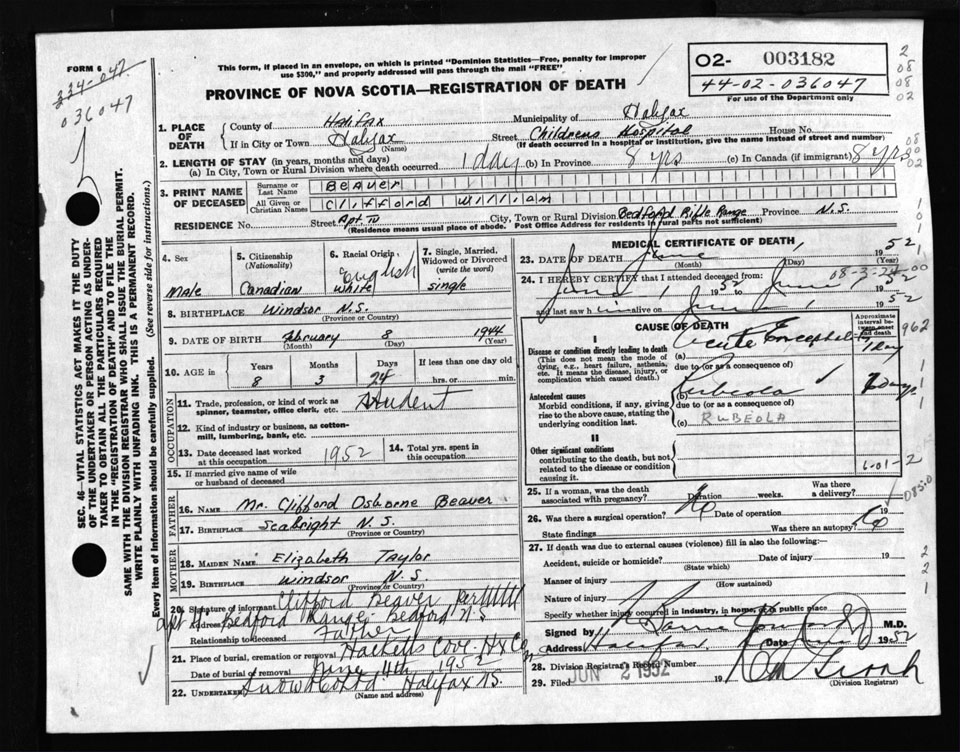 FORM 6
234-047
036047
This form, if placed in an envelope, on which is printed "Dominion Statistics—Free, penalty for improper
use $300," and properly addressed will pass through the mail "FREE"
PROVINCE OF NOVA SCOTIA—REGISTRATION OF DEATH
O2- 003182
44-02-036047
For use of the Department only
2
08
08
02
SEC. 46—VITAL STATISTICS ACT MAKES IT THE DUTY
OF THE UNDERTAKER OR PERSON ACTING AS UNDER-
TAKER TO OBTAIN ALL THE PARTICULARS REQUIRED
IN THE "REGISTRATION OF DEATH" AND TO FILE THE
SAME WITH THE DIVISION REGISTRAR WHO SHALL ISSUE THE BURIAL PERMIT.
WRITE PLAINLY WITH UNFADING INK. THIS IS A PERMANENT RECORD.
Every item of information should be carefully supplied. (See reverse side for instructions.)
1. PLACE OF DEATH
County of Halifax Municipality of Halifax
If in City or Town Halifax Street Childrens Hospital House No.
(Name) (If death occurred in a hospital or institution, give the name instead of street and number)
2. LENGTH OF STAY (in years, months and days)
(a) In City, Town or Rural Division where death occurred 1 day (b) In Province 8 yrs (c) In Canada (if immigrant) 8 yrs
08
00
02
3. PRINT NAME OF DECEASED
Surname or Last Name Beaver
All Given or Christian Names Clifford William
RESIDENCE No. Street Apt IV City, Town or Rural Division Bedford Rifle Range Province N.S.
(Residence means usual place of abode. Post Office Address for residents in rural parts not sufficient)
4. Sex
Male
5. Citizenship
(Nationality)
Canadian
6. Racial Origin
English
White
7. Single, Married, Widowed or Divorced
(write the word)
single
8. BIRTHPLACE Windsor N.S.
(Province or Country)
9. DATE OF BIRTH February 8 1944
(Month) (Day) (Year)
10. AGE in Years Months Days If less than one day old
8 3 24 hrs. or min.
OCCUPATION
11. Trade, profession, or kind of work as
spinner, teamster, office clerk, etc. Student
12. Kind of industry or business, as cotton-
mill, lumbering, bank, etc.
13. Date deceased last worked
at this occupation 1952
14. Total yrs. spent in
this occupation
15. If married give name of wife
or husband of deceased
FATHER
16. NAME Mr. Clifford Osborne Beaver
17. BIRTHPLACE Seabright N.S.
(Province or Country)
MOTHER
18. MAIDEN NAME Elizabeth Taylor
19. BIRTHPLACE Windsor N.S.
(Province or Country)
20. Signature of informant Clifford Beaver
Apt Bedford Range Bedford N.S
Relationship to deceased Father
21. Place of burial, cremation or removal Hacketts Cove Hx Co
Date of burial or removal June 4th 1952
22. Undertaker Snow & Co Ltd Halifax N.S.
(Name and address)
MEDICAL CERTIFICATE OF DEATH
23. DATE OF DEATH June 1 1952
(Month) (Day) (Year)
08-3-24-00
24. I HEREBY CERTIFY that I attended deceased from:
June 1 1952 to June 1 1952
and last saw him alive on June 1 1952
CAUSE OF DEATH
Approximate interval between onset and death
I
Disease or condition directly leading to death
(This does not mean the mode of
dying, e.g., heart failure, asthenia,
etc. It means the disease, injury, or
complication which caused death.)
(a) Acute Encephalitis 1 Day
due to (or as a consequence of)
Antecedent causes
Morbid conditions, if any, giving
rise to the above cause, stating the
underlying condition last.
Rubeola 7 days
due to (or as a consequence of)
(c) RUBEOLA
II
Other significant conditions
contributing to the death, but not
related to the disease or condition
causing it.
25. If a woman, was the death
associated with pregnancy? Duration weeks. Was there
a delivery?
26. Was there a surgical operation? No Date of operation 19
State findings Was there an autopsy? No
085.0
27. If death was due to external causes (violence) fill in also the following:
Accident, suicide or homicide? Date of injury 19
(State which)
Manner of injury
(How sustained)
Nature of injury
Specify whether injury occurred in industry, in home, or in public place
Signed by M.D.
Address Halifax. Date 1952
28. Division Registrar's Record Number
29. Filed JUN 2 1952 19
(Division Registrar)